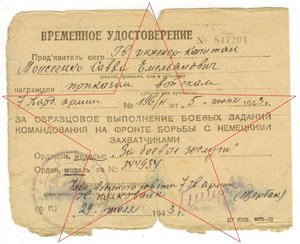 № 847204
ВРЕМЕННОЕ УДОСТОВЕРЕНИЕ
Пред'явитель сего Гв. инженер-капитан
Моисеенко Савва Емельянович
(звание, фамилия, имя и отчество)
награжден приказом войскам
7 Гвард. армии № /н от 5 1943 г.
ЗА ОБРАЗЦОВОЕ ВЫПОЛНЕНИЕ БОЕВЫХ ЗАДАНИЙ
КОМАНДОВАНИЯ НА ФРОНТЕ БОРЬБЫ С НЕМЕЦКИМИ
ЗАХВАТЧИКАМИ
Орденом, медалью „За боевые заслуги"
Орден, медаль за №
7 Гв. армии
Гв. подполковник
(М. П.) 24 1943 г.